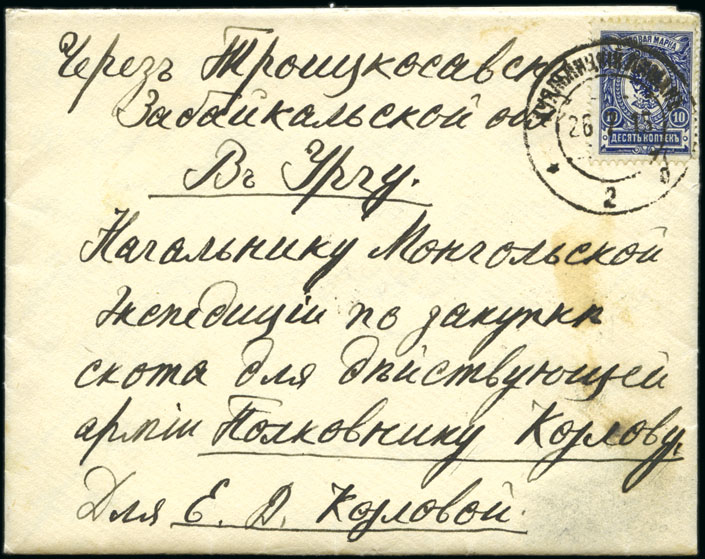 Черезъ Троицкосавскъ
Забайкальской об
Въ Ургу.
Начальнику Монгольской
Экспедиціи по закупкѣ
скота для дѣйствующей
арміи Полковнику Козлову.
Для Е. В. Козловой.
МАРКА
10 10
ДЕСЯТЬ КОПѢЕКЪ
26 2
2